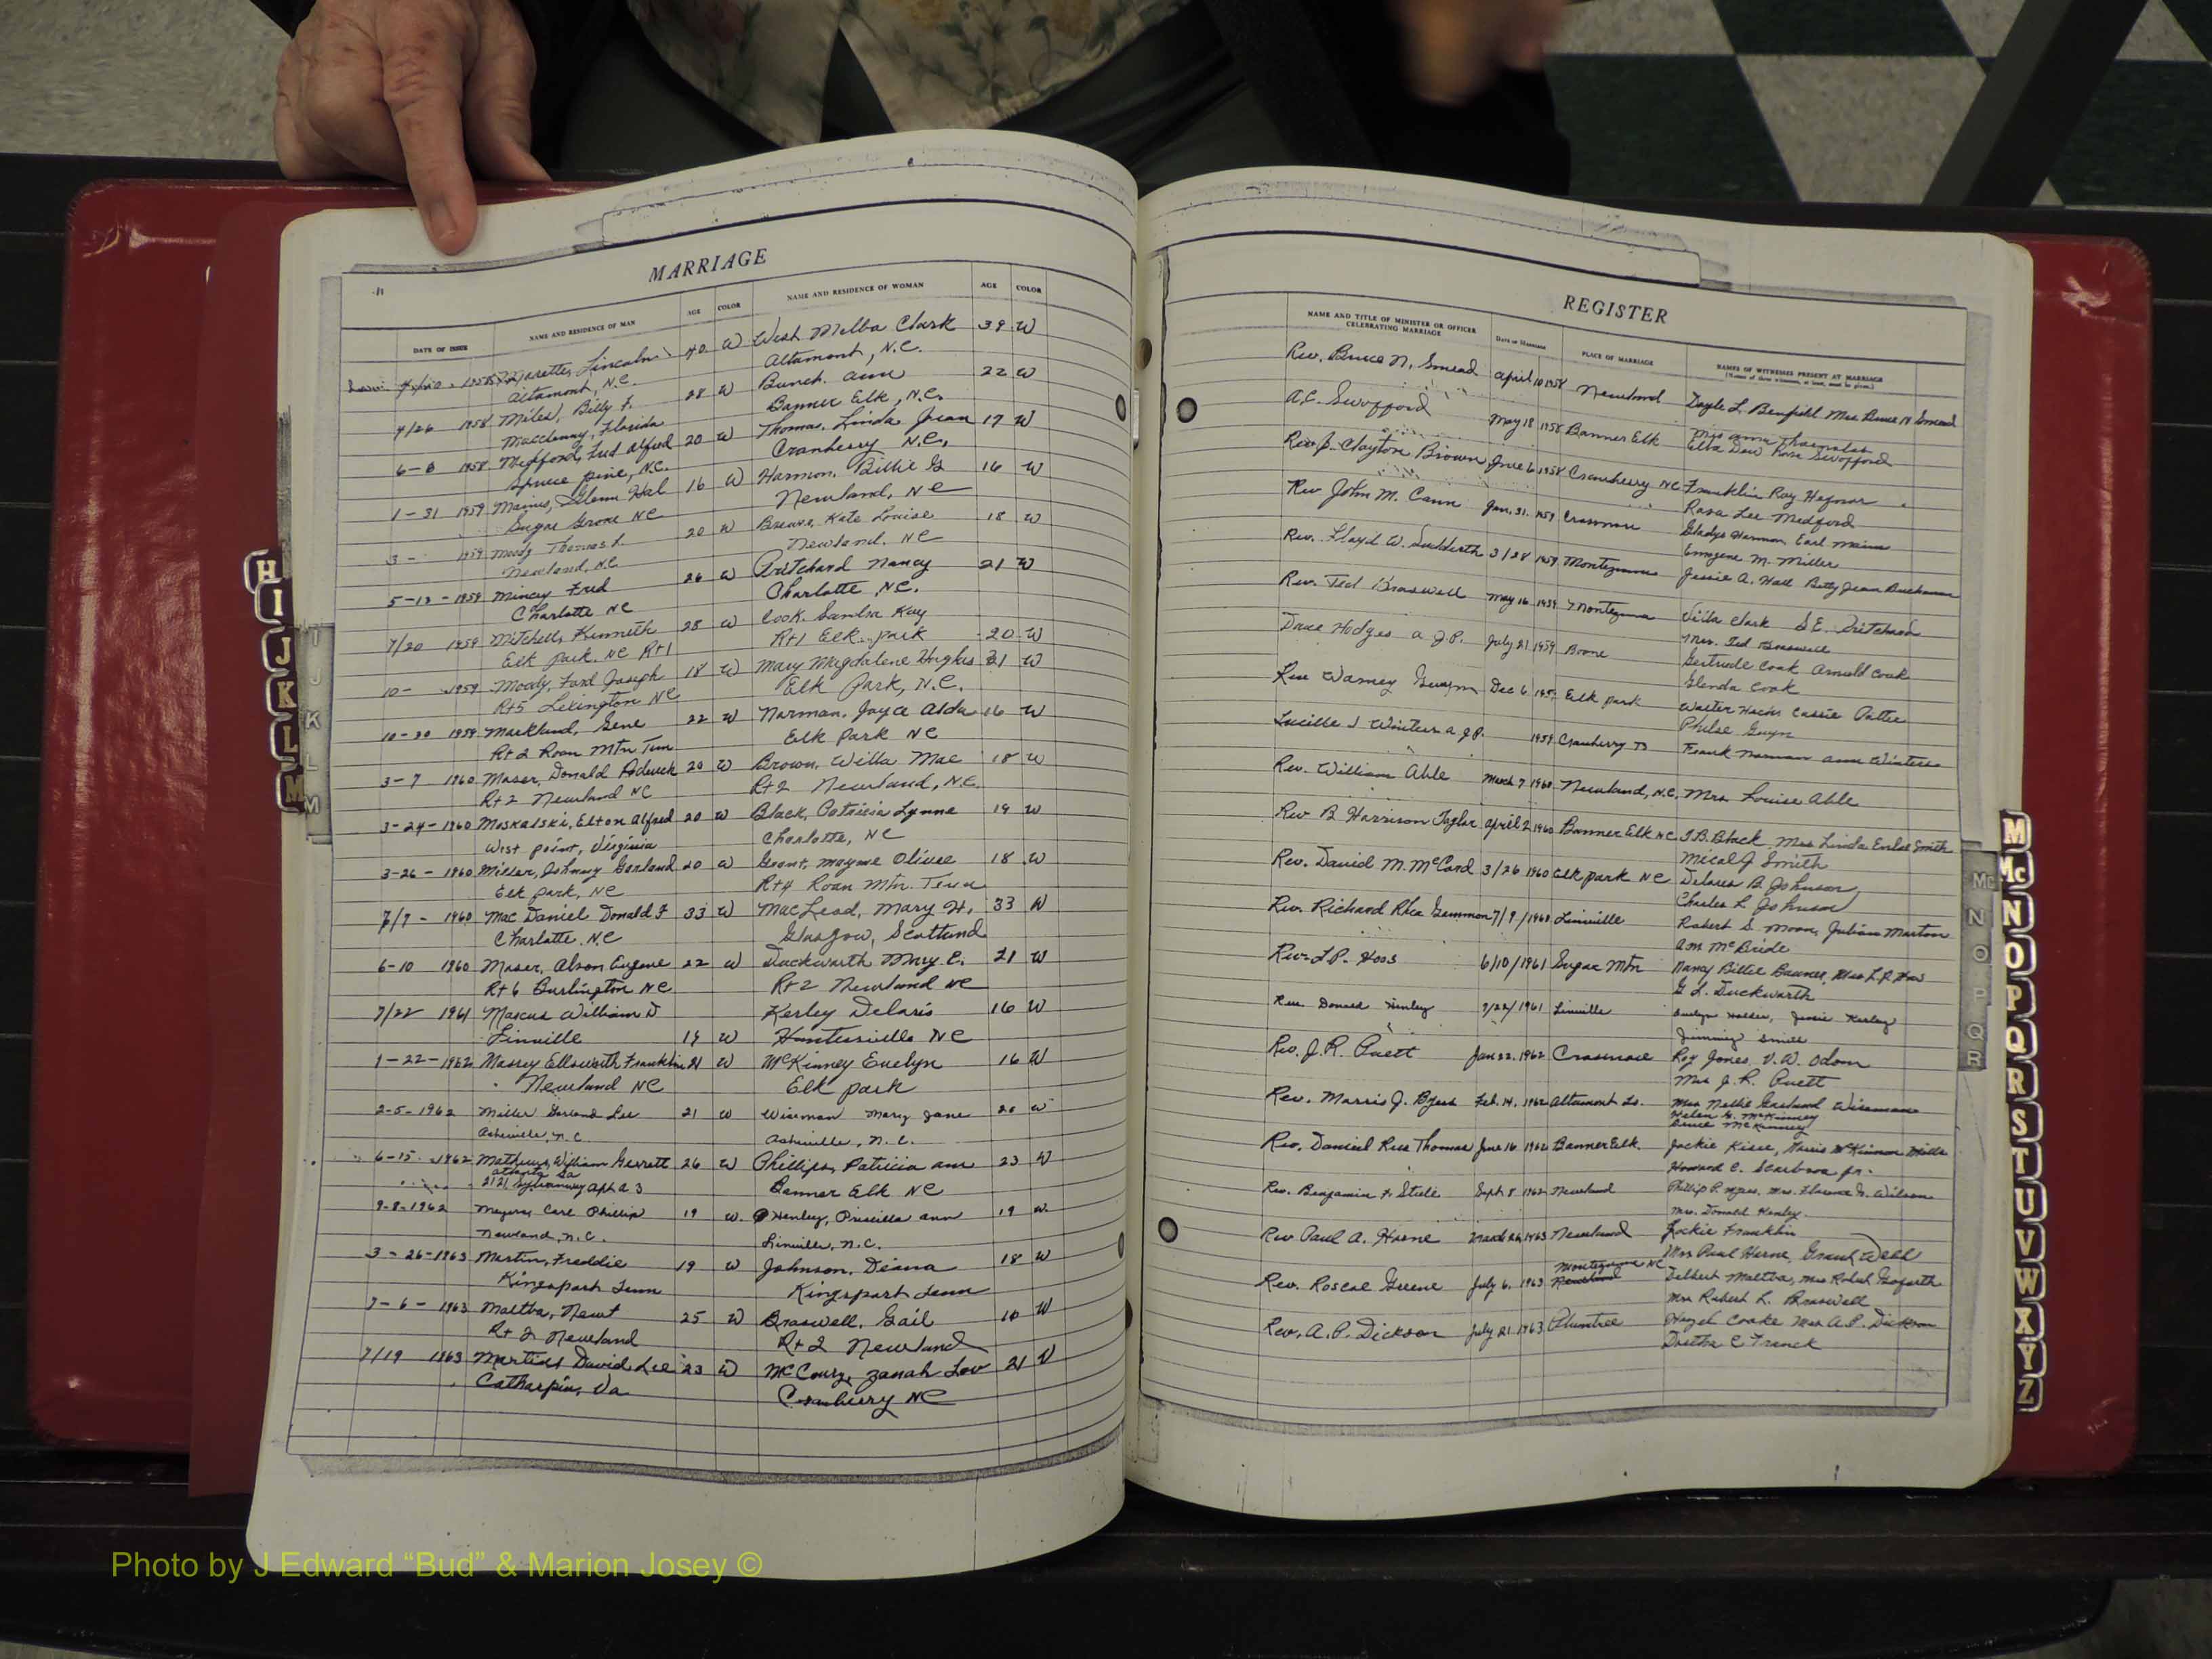 MARRIAGE
DATE OF ISSUE
NAME AND RESIDENCE OF MAN
AGE
COLOR
NAME AND RESIDENCE OF WOMAN
AGE
COLOR
Lincoln 40 W West Melba Clark 39 W
Altamont, N.C. Altamont, N.C.
4/26 1958 Miles, Billy F. 28 W Bunch. Ann 22 W
Macclenny, Florida Banner Elk, N.C.
6-6 1958 Medford, Alfred 20 W Thomas, Linda Jean 17 W
Spruce Pine, N.C. Cranberry N.C.
1-31 1959 Mains, Glenn Hal 16 W Harmon, Billie G 16 W
Sugar Grove NC Newland, NC
3- 1959 Moody Thomas L. 20 W Kate Louise 18 W
Newland, N.C. Newland. NC
5-13-1959 Mincey Fred 26 W Pritchard Nancy 21 W
Charlotte NC Charlotte NC.
7/20 1959 Mitchell, Kenneth 28 W Cook. Sandra Kay
Elk Park. NC Rt1 Rt1 Elk park 20 W
10- 1959 Moody, Ford Joseph 18 W Mary Magdalene Hughes 21 W
Rt5 Lexington NC Elk Park, N.C.
10-30 1959 Markland, Gene 22 W Norman, Joyce Alda 16 W
Rt 2 Roan Mtn Tenn Elk Park NC
3-7 1960 Moser, Donald 20 W Brown, Willa Mae 18 W
Rt 2 Newland NC Rt 2 Newland, N.C.
3-24-1960 Moskalski, Elton Alfred 20 W Black, Patricia Lynne 19 W
West point, Virginia Charlotte, NC
3-26-1960 Miller, Johnny Garland 20 W Grant, Mayme Olivee 18 W
Elk Park, NC Rt4 Roan Mtn. Tenn
7/7-1960 Mac Daniel Donald F 33 W MacLeod, Mary H. 33 W
Charlotte. NC Glasgow, Scotland
6-10 1960 Moser, Alson Eugene 22 W Duckworth Mary E. 21 W
Rt 6 Burlington NC Rt 2 Newland NC
7/22 1961 Marcus William D Kerley Deloris 16 W
Linville 19 W Huntersville NC
1-22-1962 Massey Ellsworth Franklin 21 W McKinney Evelyn 16 W
Newland NC Elk park
2-5-1962 Miller Garland Lee 21 W Wiseman Mary Jane 20 W
Asheville, N.C. Asheville, N.C.
6-15 1962 Mathews, William Gerrett 26 W Phillips, Patricia Ann 23 W
Atlanta Ga
Apt A 3 Banner Elk NC
9-8-1962 Meyers, Carl Phillip 19 W. Henley, Priscilla Ann 19 W
Newland, N.C. Linville, N.C.
3-26-1963 Martin, Freddie 19 W Johnson, Diana 18 W
Kingsport Tenn Kingsport Tenn
7-6-1963 Maltba, Newt 25 W Braswell, Gail 18 W
Rt 2 Newland Rt 2 Newland
7/19 1963 Martin David Lee 23 W McCoury, Zanah Lou 21 W
Catharpin, Va Cranberry NC
REGISTER
NAME AND TITLE OF MINISTER OR OFFICER
CELEBRATING MARRIAGE
Date of Marriage
PLACE OF MARRIAGE
NAMES OF WITNESSES PRESENT AT MARRIAGE
(Names of three witnesses, at least, must be given.)
Rev. Bruce N. Smead April 10 1958 Newland Doyle L. Benfield Mrs Bruce N Smead
A.C. Swofford May 18 1958 Banner Elk
Swofford
Rev J. Clayton Brown June 6 1958 Cranberry NC Franklin Ray
Lee Medford
Rev John M. Cann Jan. 31. 1959 Crossnore Gladys Harmon, Earl Mains
Emogene M. Miller
Rev. Lloyd W. Sudderth 3/28 1959 Montezuma Jessie A. Hall Betty Jean Buchanan
Rev. Ted Braswell May 16 1959 Montezuma Clark S E. Pritchard
Mrs. Ted Braswell
Dave Hodges a J.P. July 21 1959 Boone Gertrude Cook Arnold Cook
Glenda Cook
Rev Warney Dec 6 Elk park Walter Cassie
Lucille J Winters a J.P. 1959 Cranberry Frank Norman Ann Winters
Rev. William Able March 7 1960 Newland, N.C. Mrs Louise Able
Rev B Harrison Taylor April 2 1960 Banner Elk NC J.B. Black, Mrs Linda Smith
Smith
Rev. David M. McCord 3/26 1960 Elk park NC Delores B. Johnson
Charles L Johnson
Rev. Richard Rhea Gammon 7/9/1960 Linville Robert S. Moon, Julian Morton
McBride
Rev. L.P. Hoss 6/10/1961 Sugar Mtn Nancy Billie
G L. Duckworth
Rev Donald 7/22/1961 Linville Jessie Kerley
Jimmy Smith
Rev. J.R. Puett Jan 22. 1962 Crossnore Roy Jones V.W. Odom
Mrs J.R. Puett
Rev. Morris J. Byers Feb. 14. 1962 Altamont Mrs Nellie Garland Wiseman
Helen G. McKinney
Bruce McKinney
Rev. Daniel Ross Thomas June 16 1962 Banner Elk. Jackie
Howard C. Scarboro Jr.
Rev. Benjamin F. Steele Sept. 8 1962 Newland Phillip P. Myers, Mrs. Florence G. Wilson
Mrs. Donald Henley
Rev Paul A. Horne March 26 1963 Newland Jackie Franklin
Mrs Paul Horne, Grant Webb
Montezuma NC
Rev. Roscoe Greene July 6. 1963 Newland Delbert Maltba, Mrs Robert
Mrs Robert L. Braswell
Rev. A.P. Dickson July 21 1963 Plumtree Hazel Cooke Mrs A.P. Dickson
Dretha C Franck
H
I
J
K
L
M
J
K
L
M
M
Mc
N
O
P
Q
R
S
T
U
V
W
X
Y
Z
Mc
N
O
P
Q
R
Photo by J Edward “Bud” & Marion Josey ©